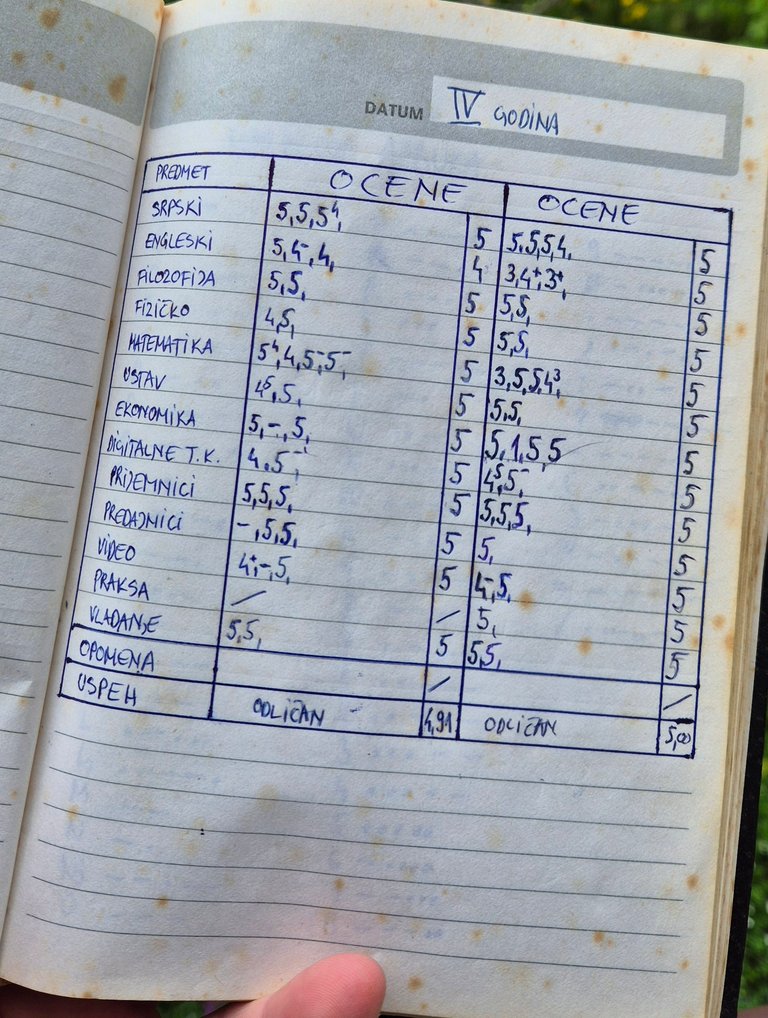 DATUM IV GODINA
PREDMET OCENE OCENE
SRPSKI 5,5,5⁴, 5 5,5,5,4, 5
ENGLESKI 5,4⁻,4, 4 3,4⁺,3⁺, 5
FILOZOFIJA 5,5, 5 5,5, 5
FIZIČKO 4,5, 5 5,5, 5
MATEMATIKA 5⁴,4,5⁻,5⁻, 5 3,5,5,4³, 5
USTAV 4⁵,5, 5 5,5, 5
EKONOMIKA 5,-,5, 5 5,1,5,5 5
DIGITALNE T.K. 4,5⁻, 5 4⁵,5⁻, 5
PRIJEMNICI 5,5,5, 5 5,5,5, 5
PREDAJNICI -,5,5, 5 5, 5
VIDEO 4⁺,-,5, 5 4⁻,5, 5
PRAKSA / / 5, 5
VLADANJE 5,5, 5 5,5, 5
OPOMENA / /
USPEH ODLIČAN 4,91 ODLIČAN 5,00